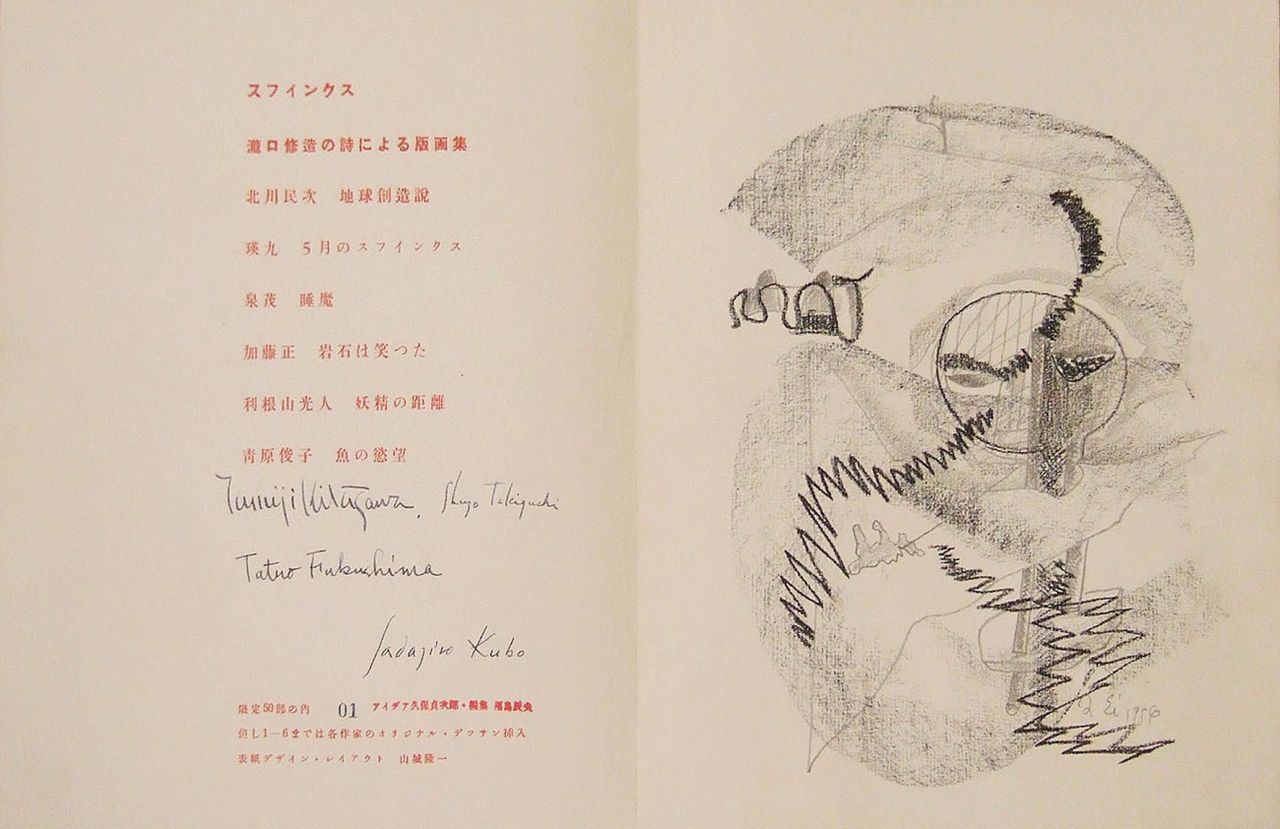 スフインクス
瀧口修造の詩による版画集
北川民次　地球創造説
瑛九　5月のスフインクス
泉茂　睡魔
加藤正　岩石は笑つた
利根山光人　妖精の距離
青原俊子　魚の慾望
Tamiji Kitagawa. Shuzo Takiguchi
Tatuo Fukushima
Sadajiro Kubo
限定50部の内　01　アイデア久保貞次郎・編集 福島辰夫
但し1―6までは各作家のオリジナル・デツサン挿入
表紙デザイン・レイアウト　山城隆一
Ei 1956